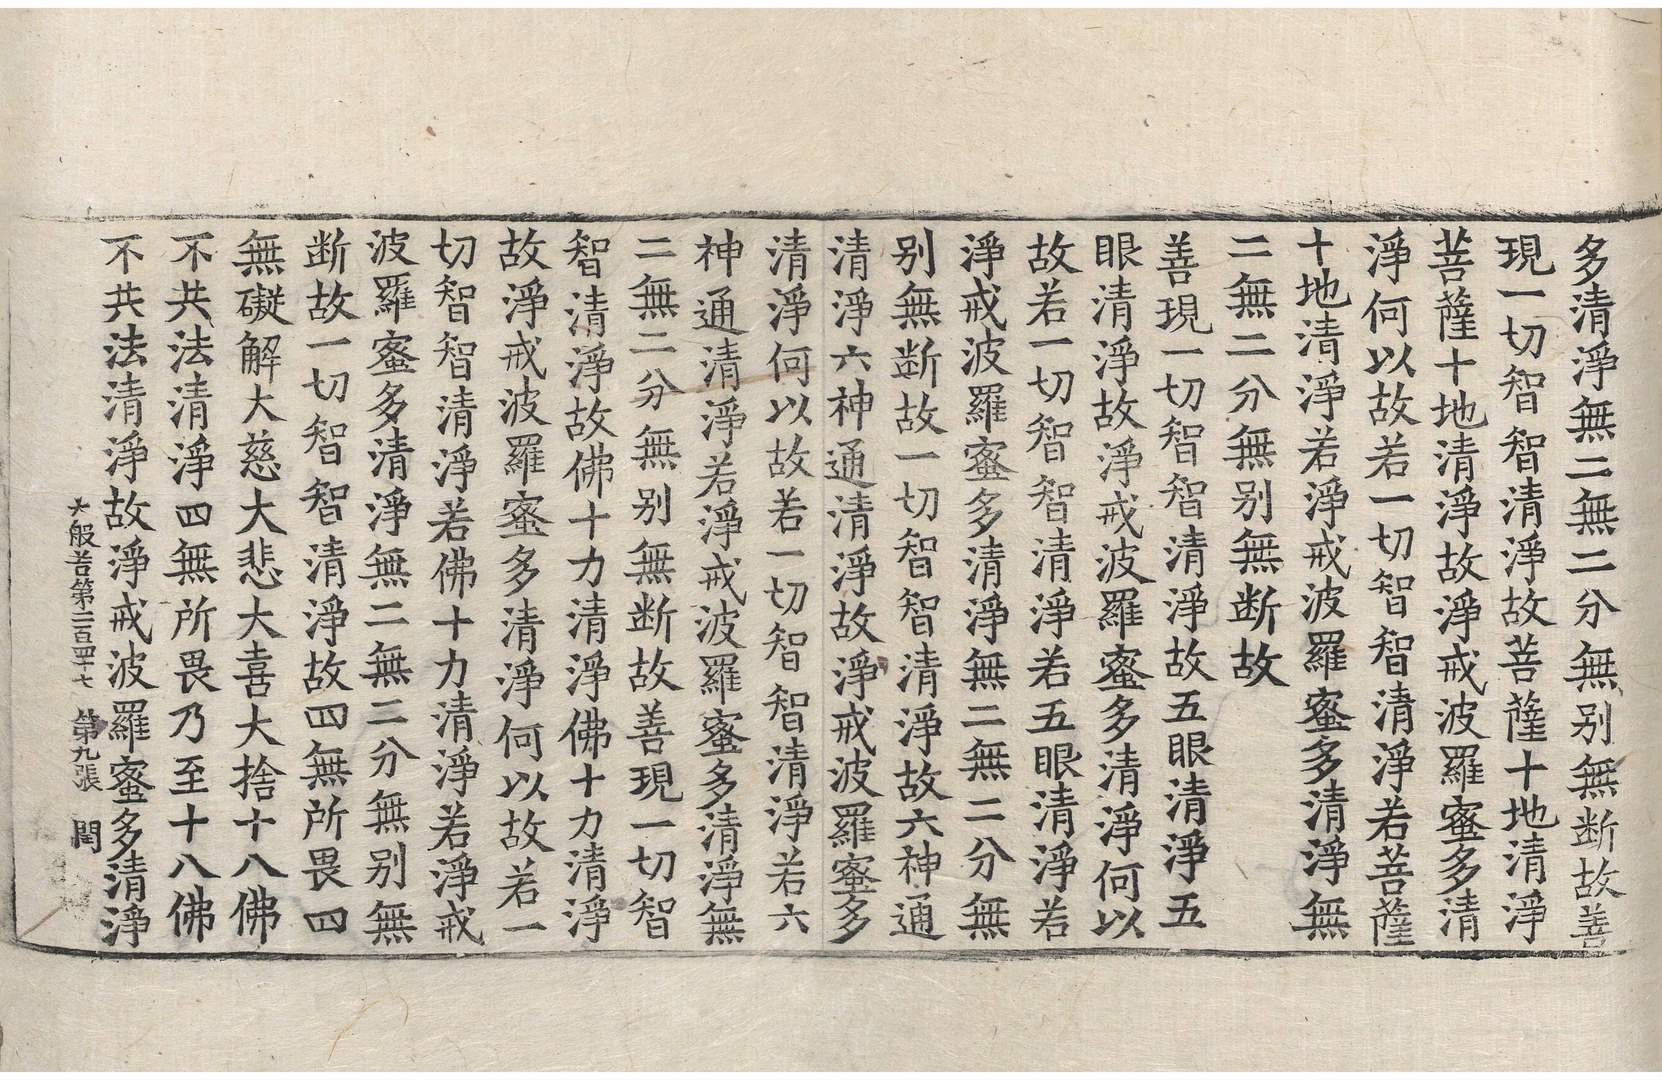 多清淨無二無二分無別無断故善
現一切智智清淨故菩薩十地清淨
菩薩十地清淨故淨戒波羅蜜多清
淨何以故若一切智智清淨若菩薩
十地清淨若淨戒波羅蜜多清淨無
二無二分無別無断故
善現一切智智清淨故五眼清淨五
眼清淨故淨戒波羅蜜多清淨何以
故若一切智智清淨若五眼清淨若
淨戒波羅蜜多清淨無二無二分無
別無断故一切智智清淨故六神通
清淨六神通清淨故淨戒波羅蜜多
清淨何以故若一切智智清淨若六
神通清淨若淨戒波羅蜜多清淨無
二無二分無別無断故善現一切智
智清淨故佛十力清淨佛十力清淨
故淨戒波羅蜜多清淨何以故若一
切智智清淨若佛十力清淨若淨戒
波羅蜜多清淨無二無二分無別無
断故一切智智清淨故四無所畏四
無礙解大慈大悲大喜大捨十八佛
不共法清淨四無所畏乃至十八佛
不共法清淨故淨戒波羅蜜多清淨
大般若第二百四十七 第九張 閏